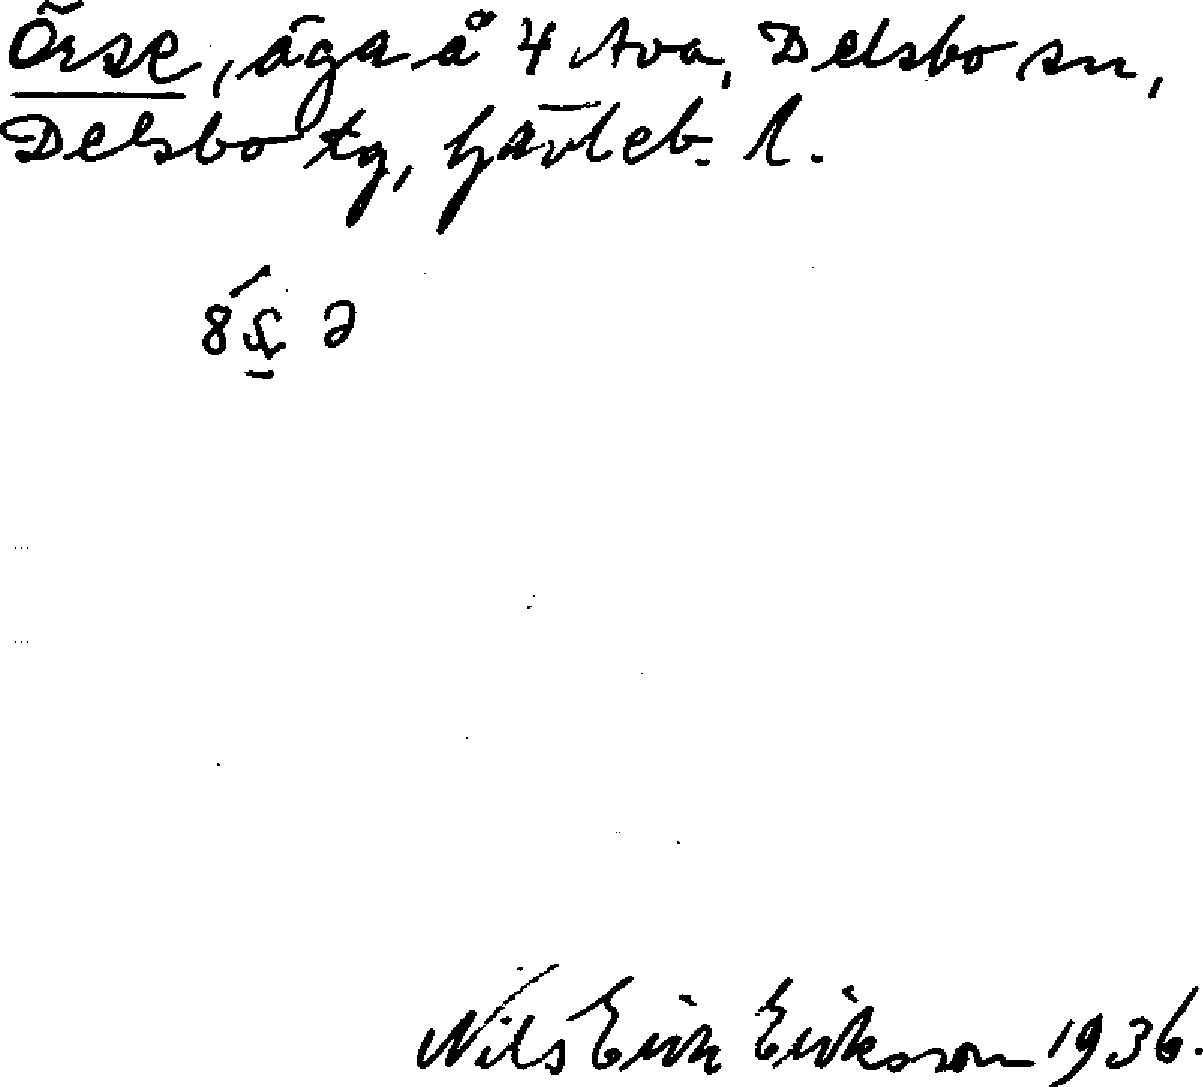 Örse, äga å 4 Ava, Delsbo sn,
Delsbo tg, Gävleb. l.
Nils Erik Eriksson 1936.